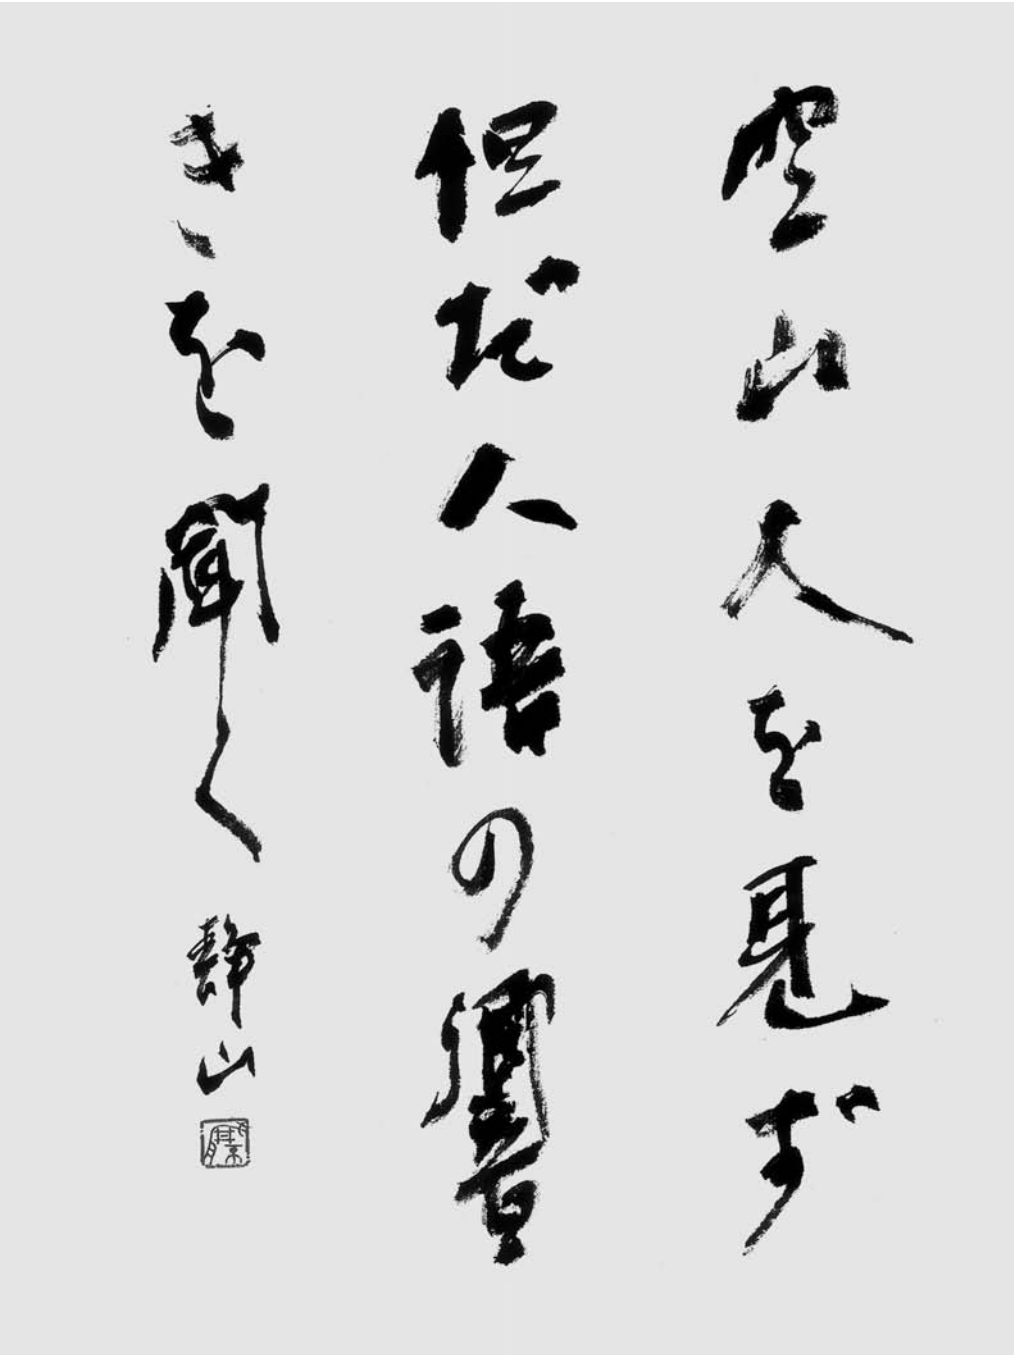 空山人を見ず
但だ人語の響
きを聞く 静山